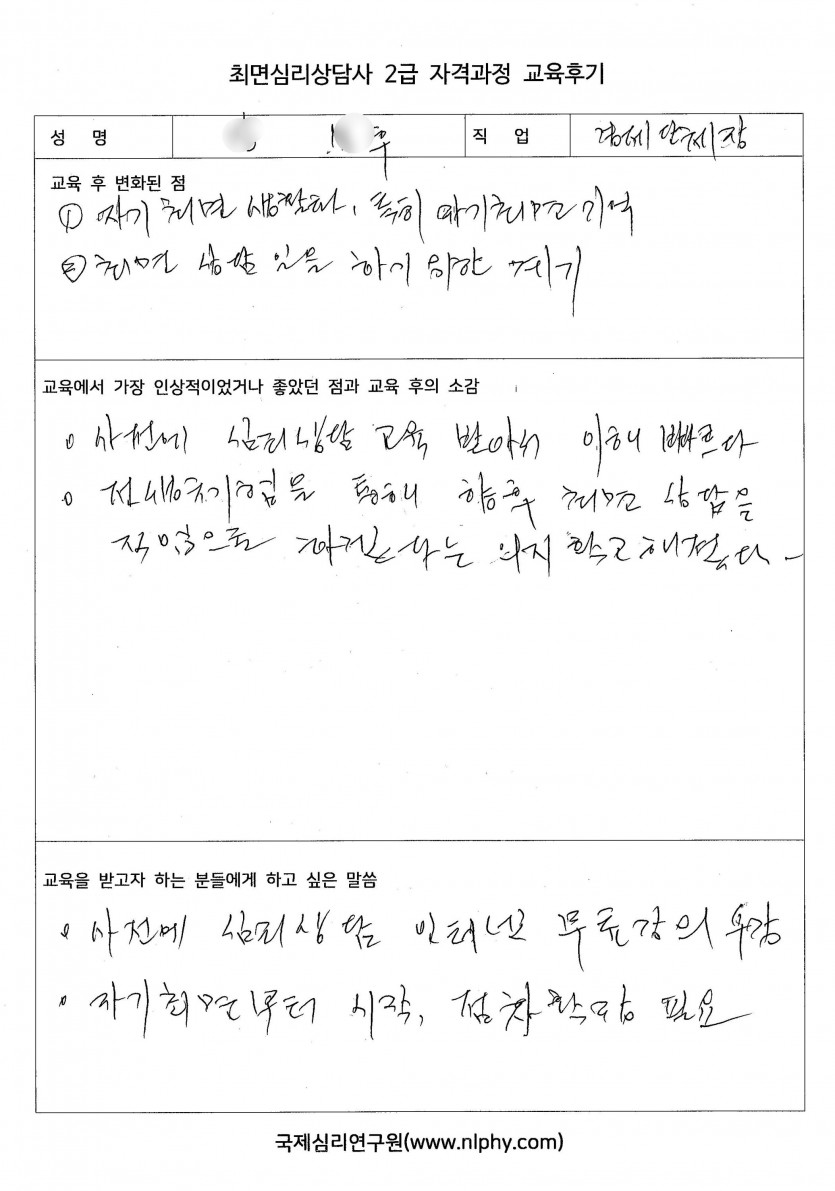 최면심리상담사 2급 자격과정 교육후기
성 명 후 직 업 경제단체장
교육 후 변화된 점
① 자기 최면 생활화, 특히 자기최면 기억
② 최면 상담 일을 하기 위한 계기
교육에서 가장 인상적이었거나 좋았던 점과 교육 후의 소감
o 사전에 심리상담 교육 받아서 이해 빠르다
o 전생체험을 통해 향후 최면 상담을
직업으로 하겠다는 의지 확고해졌다.
교육을 받고자 하는 분들에게 하고 싶은 말씀
o 사전에 심리상담 인터넷 무료강의 수강
o 자기최면부터 시작, 점차 확장 필요
국제심리연구원(www.nlphy.com)